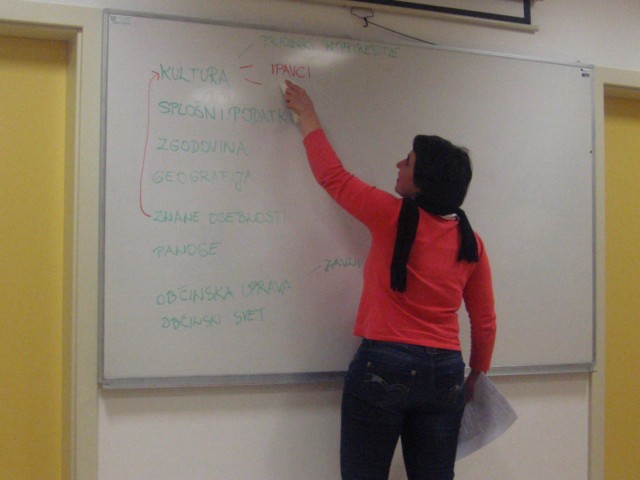 KULTURA
IPAVCI
SPLOŠNI PODATKI
ZGODOVINA
GEOGRAFIJA
ZNANE OSEBNOSTI
PANOGE
OBČINSKA UPRAVA
OBČINSKI SVET